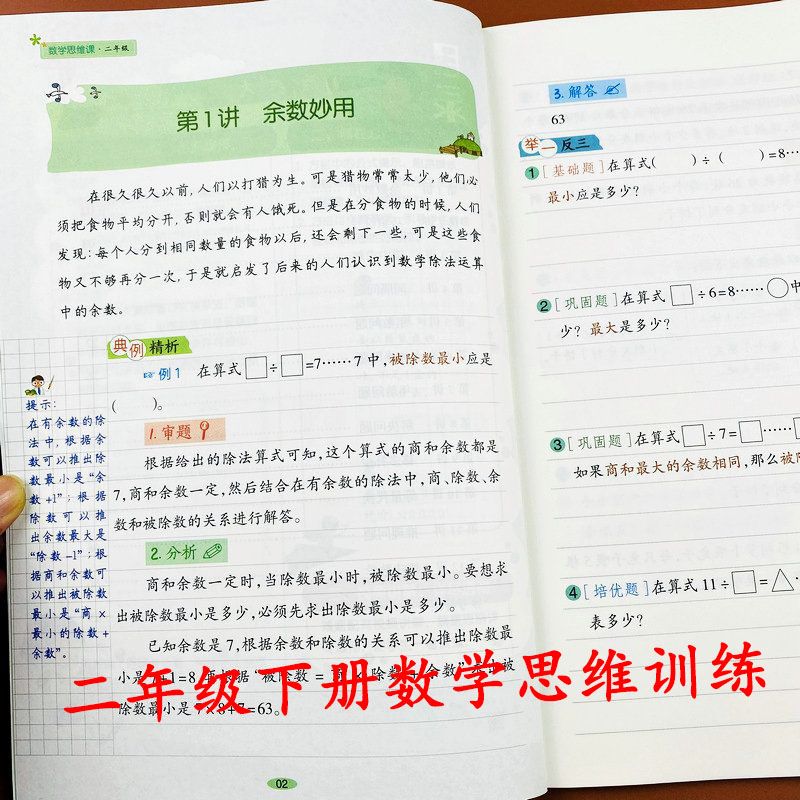 数学思维课·二年级
第1讲 余数妙用
在很久很久以前,人们以打猎为生。可是猎物常常太少,他们必
须把食物平均分开,否则就会有人饿死。但是在分食物的时候,人们
发现:每个人分到相同数量的食物以后,还会剩下一些,可是这些食
物又不够再分一次,于是就启发了后来的人们认识到数学除法运算
中的余数。
典例精析
例1 在算式□÷□=7……7中,被除数最小应是
( )。
提示:
在有余数的除
法中,根据余
数可以推出除
数最小是“余
数+1”;根据
除数可以推
出余数最大是
“除数-1”;根
据商和余数可
以推出被除数
最小是“商×
最小的除数+
余数”。
1.审题
根据给出的除法算式可知,这个算式的商和余数都是
7,商和余数一定,然后结合在有余数的除法中,商、除数、余
数和被除数的关系进行解答。
2.分析
商和余数一定时,当除数最小时,被除数最小。要想求
出被除数最小是多少,必须先求出除数最小是多少。
已知余数是7,根据余数和除数的关系可以推出除数最
小是7+1=8,
除数最小是7×8+7=63。
02
3.解答
63
举一反三
1 [基础题]在算式( )÷( )=8…
最小应是多少?
2 [巩固题]在算式□÷6=8……○中
少?最大是多少?
3 [巩固题]在算式□÷7=□……
如果商和最大的余数相同,那么被除
4 [培优题]在算式11÷□=△
表多少?
二年级下册数学思维训练